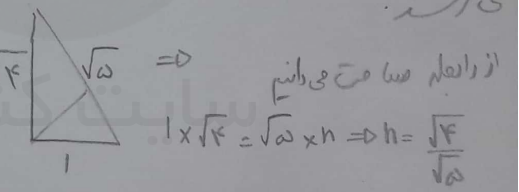 √۴
√۵ ⇒ از رابطه مساحت می‌دانیم
۱ × √۴ = √۵ × h ⇒ h = √۴/√۵
۱